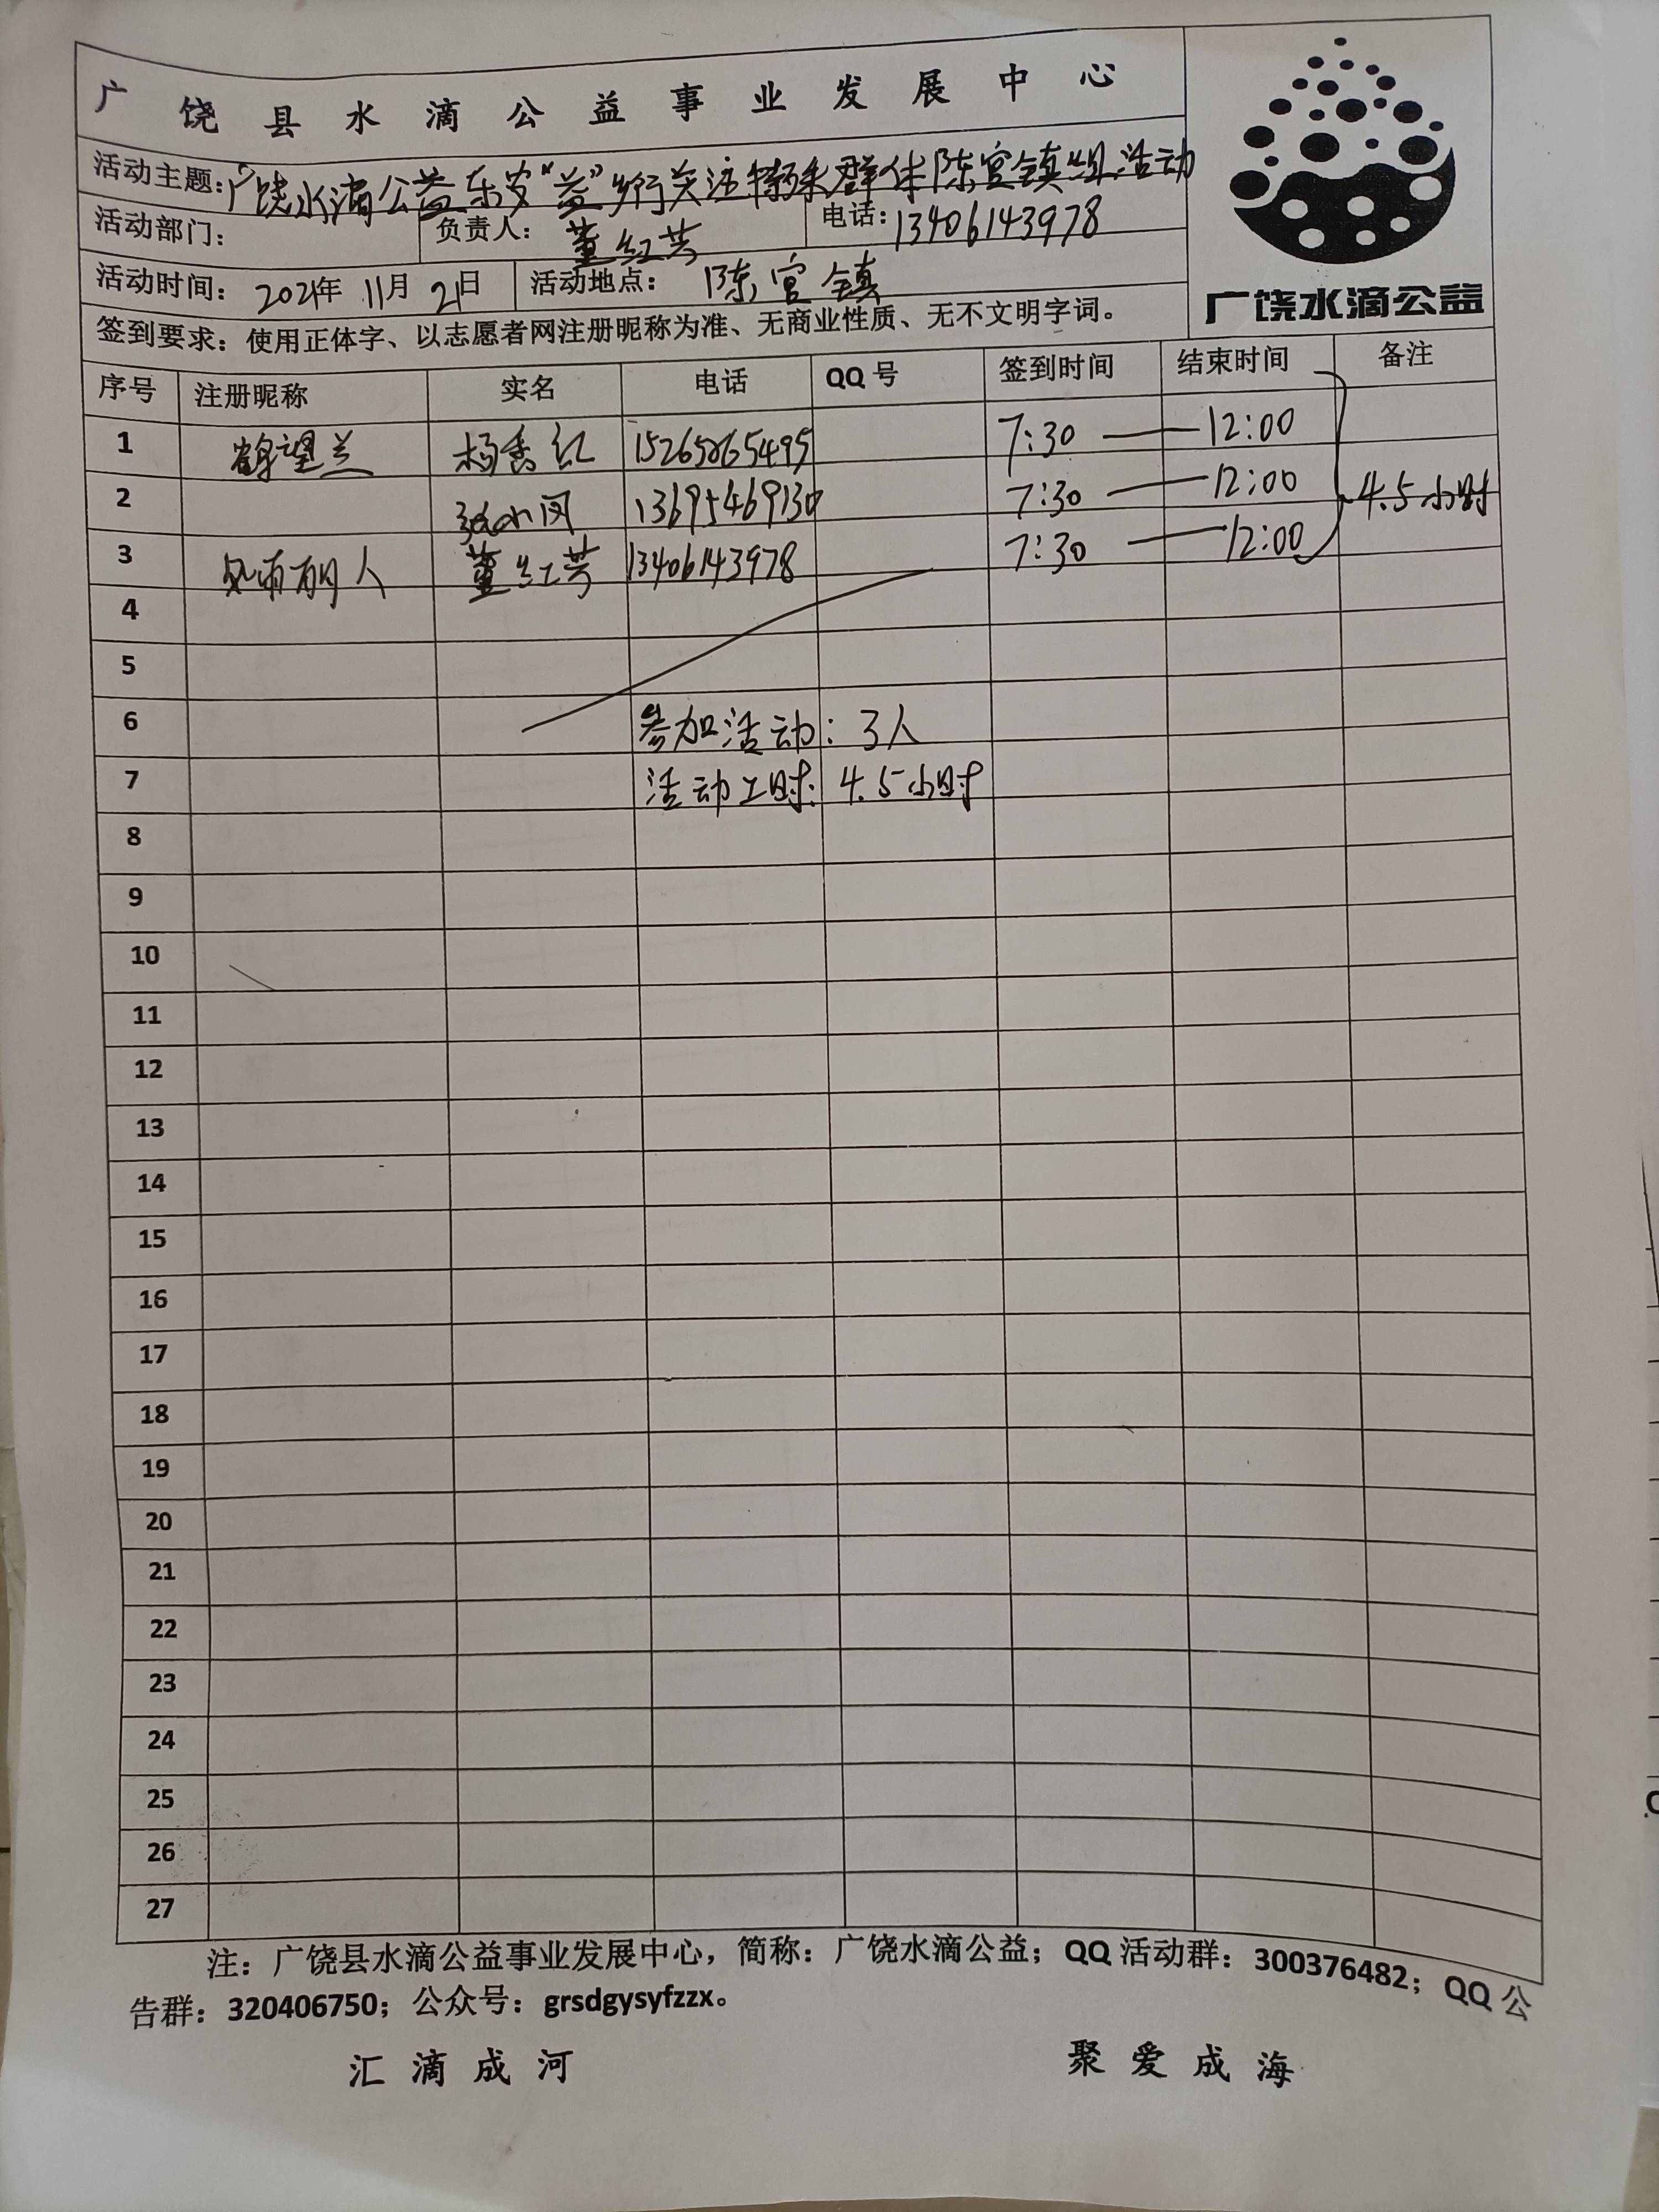 广饶县水滴公益事业发展中心
活动主题：广饶水滴公益东安“益”乡行关注特殊群体陈官镇组活动
活动部门： 负责人：董红芳 电话：13406143978
活动时间：2021年11月21日 活动地点：陈官镇
广饶水滴公益
签到要求：使用正体字、以志愿者网注册昵称为准、无商业性质、无不文明字词。
序号 注册昵称 实名 电话 QQ号 签到时间 结束时间 备注
1 鹤望兰 杨香红 15265865495 7:30 —— 12:00
2 13695469130 7:30 —— 12:00 4.5小时
3 董红芳 13406143978 7:30 —— 12:00
4
5
6 参加活动：3人
7 活动工时：4.5小时
8
9
10
11
12
13
14
15
16
17
18
19
20
21
22
23
24
25
26
27
注：广饶县水滴公益事业发展中心，简称：广饶水滴公益；QQ活动群：300376482；QQ公
告群：320406750；公众号：grsdgysyfzzx。
汇滴成河 聚爱成海